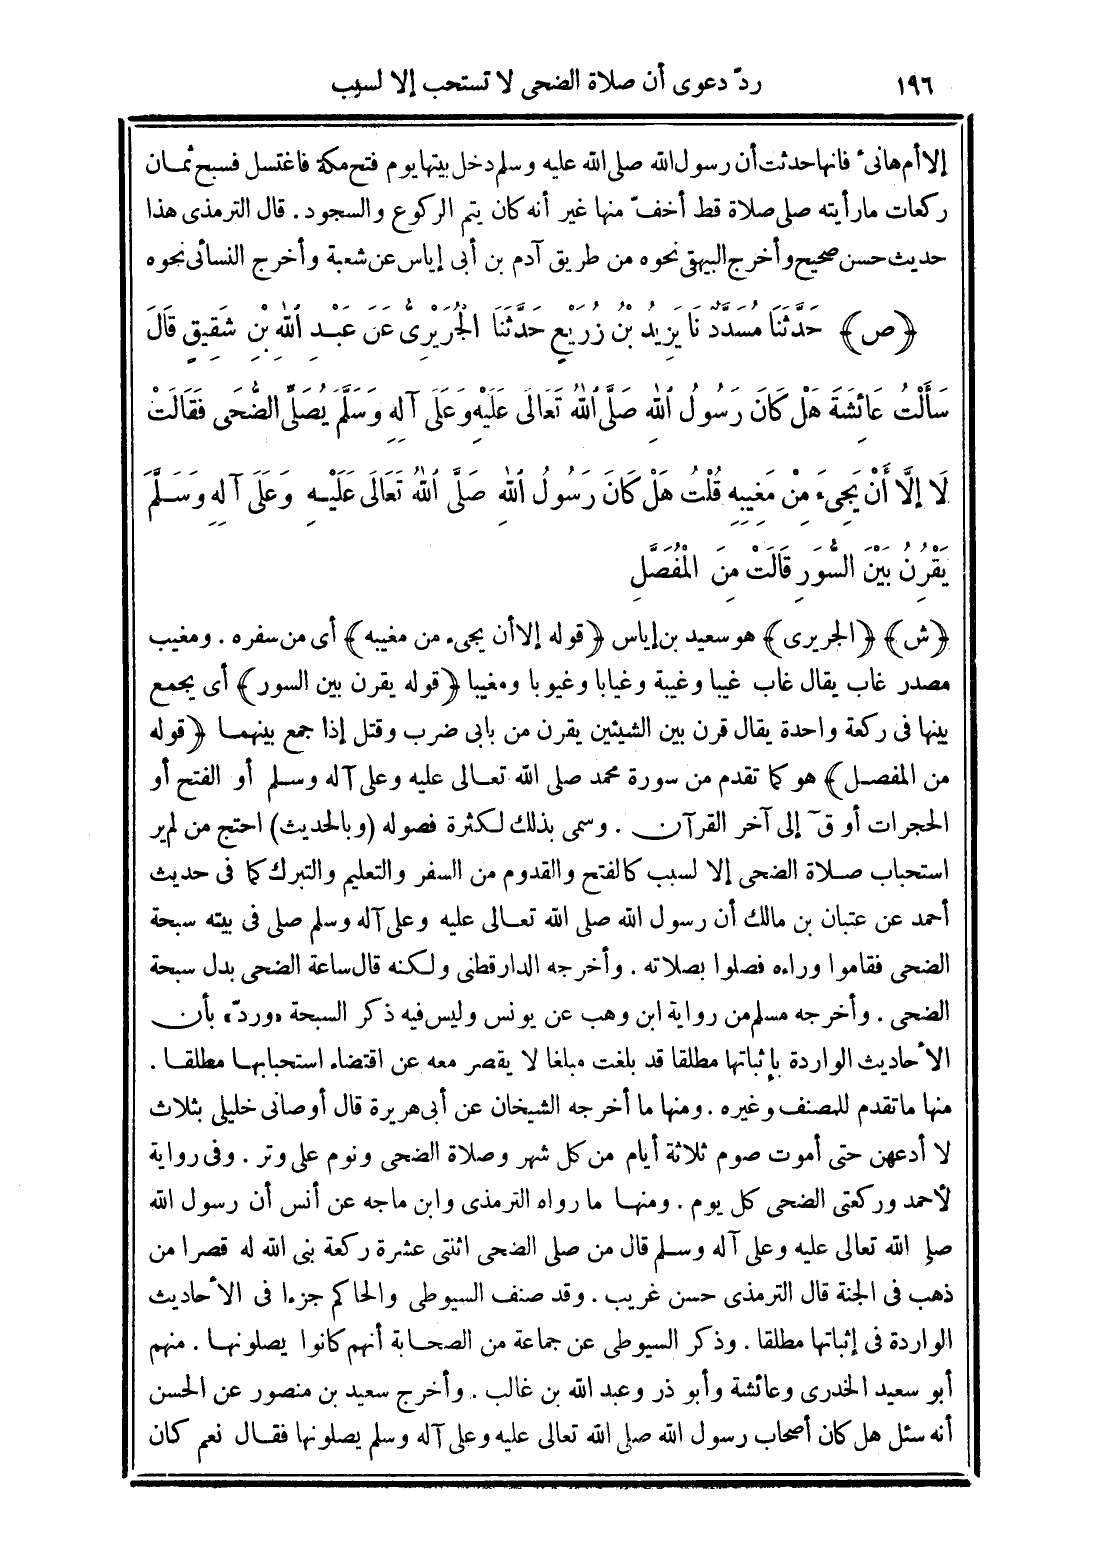 ١٩٦ ردّ دعوى أن صلاة الضحى لا تستحب إلا لسبب
إلا أم هانئ فانها حدثت أن رسول الله صلى الله عليه وسلم دخل بيتها يوم فتح مكة فاغتسل فسبح ثمان
ركعات ما رأيته صلى صلاة قط أخفّ منها غير أنه كان يتم الركوع والسجود . قال الترمذى هذا
حديث حسن صحيح وأخرج البيهقى نحوه من طريق آدم بن أبى إياس عن شعبة وأخرج النسائى نحوه
﴿ص﴾ حَدَّثَنَا مُسَدَّدٌ نَا يَزِيدُ بْنُ زُرَيْعٍ حَدَّثَنَا الْجُرَيْرِىُّ عَنْ عَبْدِ اللهِ بْنِ شَقِيقٍ قَالَ
سَأَلْتُ عَائِشَةَ هَلْ كَانَ رَسُولُ اللهِ صَلَّى اللهُ تَعَالَى عَلَيْهِ وَعَلَى آلِهِ وَسَلَّمَ يُصَلِّى الضُّحَى فَقَالَتْ
لَا إِلَّا أَنْ يَجِىءَ مِنْ مَغِيبِهِ قُلْتُ هَلْ كَانَ رَسُولُ اللهِ صَلَّى اللهُ تَعَالَى عَلَيْهِ وَعَلَى آلِهِ وَسَلَّمَ
يَقْرُنُ بَيْنَ السُّوَرِ قَالَتْ مِنَ الْمُفَصَّلِ
﴿ش﴾ ﴿الجريرى﴾ هو سعيد بن إياس ﴿قوله إلا أن يجىء من مغيبه﴾ أى من سفره . ومغيب
مصدر غاب يقال غاب غيبا وغيبة وغيابا وغيوبا ومغيبا ﴿قوله يقرن بين السور﴾ أى يجمع
بينها فى ركعة واحدة يقال قرن بين الشيئين يقرن من بابى ضرب وقتل إذا جمع بينهما ﴿قوله
من المفصل﴾ هو كما تقدم من سورة محمد صلى الله تعالى عليه وعلى آله وسلم أو الفتح أو
الحجرات أو قٓ إلى آخر القرآن . وسمى بذلك لكثرة فصوله (وبالحديث) احتج من لم ير
استحباب صلاة الضحى إلا لسبب كالفتح والقدوم من السفر والتعليم والتبرك كما فى حديث
أحمد عن عتبان بن مالك أن رسول الله صلى الله تعالى عليه وعلى آله وسلم صلى فى بيته سبحة
الضحى فقاموا وراءه فصلوا بصلاته . وأخرجه الدارقطنى ولكنه قال ساعة الضحى بدل سبحة
الضحى . وأخرجه مسلم من رواية ابن وهب عن يونس وليس فيه ذكر السبحة «وردّ» بأن
الأحاديث الواردة بإثباتها مطلقا قد بلغت مبلغا لا يقصر معه عن اقتضاء استحبابها مطلقا .
منها ما تقدم للمصنف وغيره . ومنها ما أخرجه الشيخان عن أبى هريرة قال أوصانى خليلى بثلاث
لا أدعهن حتى أموت صوم ثلاثة أيام من كل شهر وصلاة الضحى ونوم على وتر . وفى رواية
لأحمد وركعتى الضحى كل يوم . ومنها ما رواه الترمذى وابن ماجه عن أنس أن رسول الله
صلى الله تعالى عليه وعلى آله وسلم قال من صلى الضحى اثنتى عشرة ركعة بنى الله له قصرا من
ذهب فى الجنة قال الترمذى حسن غريب . وقد صنف السيوطى والحاكم جزءا فى الأحاديث
الواردة فى إثباتها مطلقا . وذكر السيوطى عن جماعة من الصحابة أنهم كانوا يصلونها . منهم
أبو سعيد الخدرى وعائشة وأبو ذر وعبد الله بن غالب . وأخرج سعيد بن منصور عن الحسن
أنه سئل هل كان أصحاب رسول الله صلى الله تعالى عليه وعلى آله وسلم يصلونها فقال نعم كان